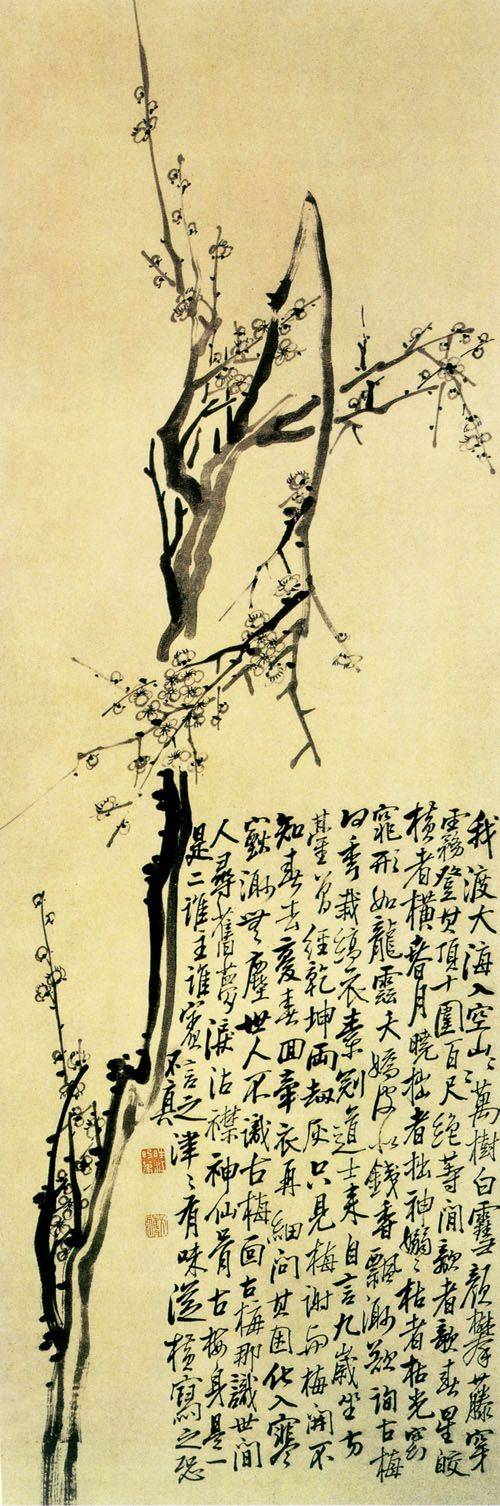 我渡大海入空山〻萬樹白雪顏攀藤穿
霧登其頂十圍百尺絕等閒欹者欹春星皎
橫者橫春月曉拙者拙神嫋〻枯者枯光窈
窕形如龍雲夭矯皮似錢香飄渺欲詢古梅
何年栽縞衣素冠道士來自言九歲坐
臺曾經乾坤兩劫灰只見梅謝與梅開不
知春去復春回牽衣再細問其因化入寥
寂渺無塵世人不識古梅面古梅那識世間
人尋舊夢淚沾襟神仙骨古梅身是一
是二誰主誰賓言之津〻有味縱橫寫之恐
不真